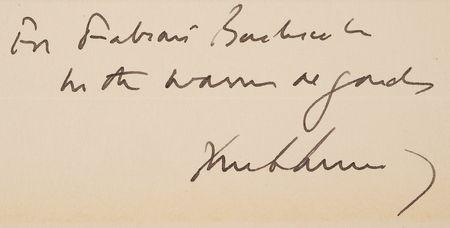 For Fabian Bachrach
with warm regards